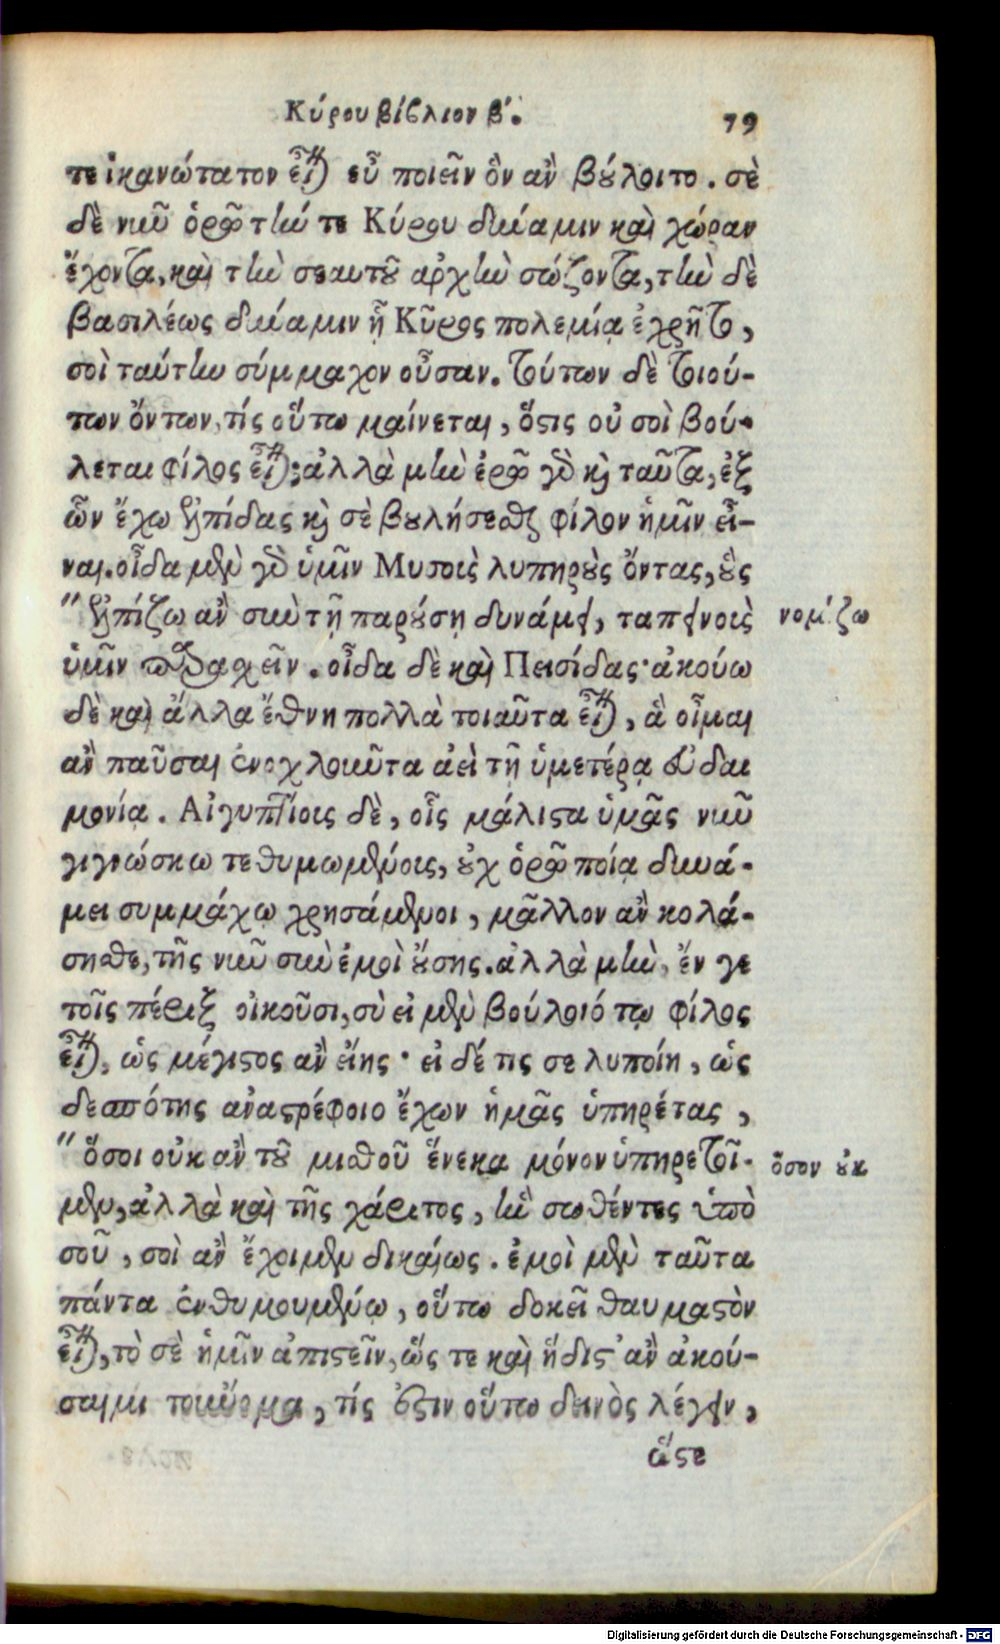 Κύρου βίβλιον β΄.
79
τε ἱκανώτατον εἶναι εὖ ποιεῖν ὃν ἂν βούλοιτο. σὲ
δὲ νῦν ὁρῶ τήν τε Κύρου δύναμιν καὶ χώραν
ἔχοντα, καὶ τὴν σεαυτοῦ ἀρχὴν σώζοντα, τὴν δὲ
βασιλέως δύναμιν ᾗ Κῦρος πολεμίᾳ ἐχρῆτο,
σοὶ ταύτην σύμμαχον οὖσαν. τούτων δὲ τοιού-
των ὄντων, τίς οὕτω μαίνεται, ὅστις οὐ σοὶ βού-
λεται φίλος εἶναι; ἀλλὰ μὴν ἐρῶ γὰρ καὶ ταῦτα, ἐξ
ὧν ἔχω ἐλπίδας καὶ σὲ βουλήσεσθαι φίλον ἡμῖν εἶ-
ναι. οἶδα μὲν γὰρ ὑμῖν Μυσοὺς λυπηροὺς ὄντας, οὓς
" ἐλπίζω ἂν σὺν τῇ παρούσῃ δυνάμει, ταπεινοὺς
νομίζω
ὑμῖν παρασχεῖν. οἶδα δὲ καὶ Πεισίδας· ἀκούω
δὲ καὶ ἄλλα ἔθνη πολλὰ τοιαῦτα εἶναι, ἃ οἶμαι
ἂν παῦσαι ἐνοχλοῦντα ἀεὶ τῇ ὑμετέρᾳ εὐδαι
μονίᾳ. Αἰγυπτίοις δὲ, οἷς μάλιστα ὑμᾶς νῦν
γιγνώσκω τεθυμωμένοις, οὐχ ὁρῶ ποίᾳ δυνά-
μει συμμάχῳ χρησάμενοι, μᾶλλον ἂν κολά-
σησθε, τῆς νῦν σὺν ἐμοὶ οὔσης. ἀλλὰ μὴν, ἔν γε
τοῖς πέριξ οἰκοῦσι, σὺ εἰ μὲν βούλοιό τῳ φίλος
εἶναι, ὡς μέγιστος ἂν εἴης· εἰ δέ τις σε λυποίη, ὡς
δεσπότης ἀναστρέφοιο ἔχων ἡμᾶς ὑπηρέτας,
" ὅσοι οὐκ ἂν τοῦ μισθοῦ ἕνεκα μόνον ὑπηρετοῖ-
ὅσον οὐκ
μεν, ἀλλὰ καὶ τῆς χάριτος, ἣν σωθέντες ὑπὸ
σοῦ, σοὶ ἂν ἔχοιμεν δικαίως. ἐμοὶ μὲν ταῦτα
πάντα ἐνθυμουμένῳ, οὕτω δοκεῖ θαυμαστὸν
εἶναι, τὸ σὲ ἡμῖν ἀπιστεῖν, ὥς τε καὶ ἥδιστ' ἂν ἀκού-
σαιμι τοὔνομα, τίς ἐστιν οὕτω δεινὸς λέγειν,
ὥστε
Digitalisierung gefördert durch die Deutsche Forschungsgemeinschaft - DFG